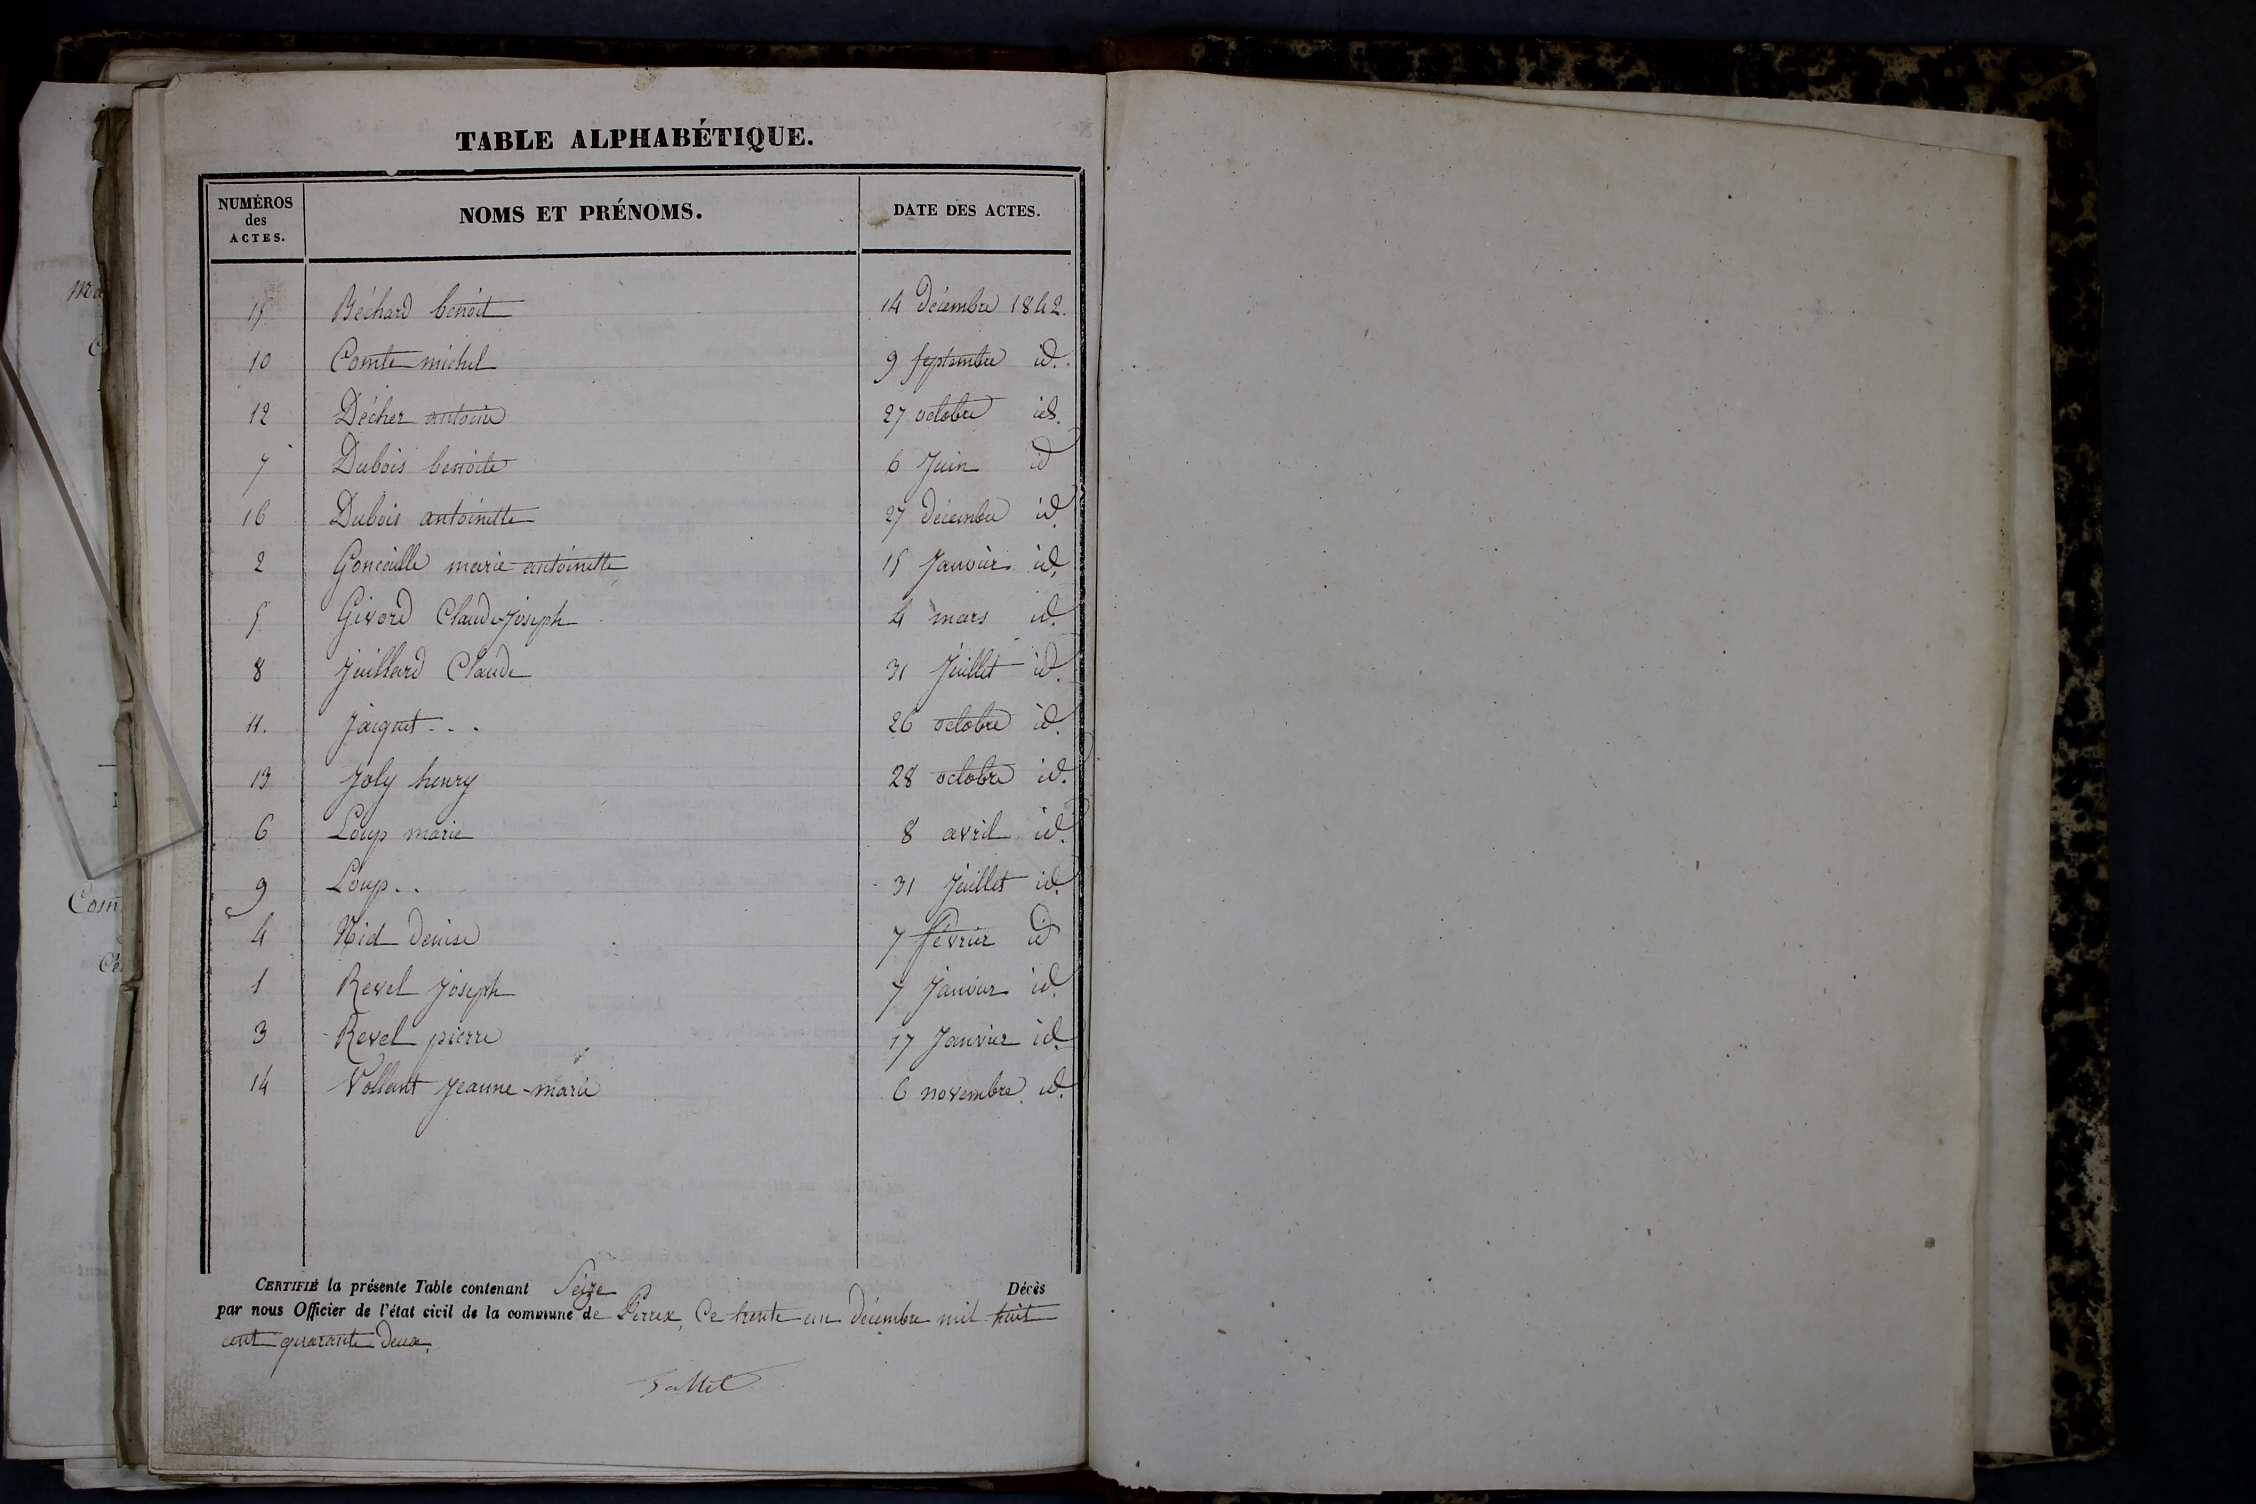 TABLE ALPHABÉTIQUE.
NUMÉROS des ACTES. NOMS ET PRÉNOMS. DATE DES ACTES.
15 Béchard benoit 14 décembre 1842.
10 Comte michel 9 septembre id.
12 Décher antoine 27 octobre id.
7 Dubois benoite 6 Juin id
16 Dubois antoinette 27 décembre id.
2 Goncaille marie antoinette 15 Janvier id.
5 Givord Claude-Joseph 4 mars id.
8 Juillard Claude 31 Juillet id.
11. Jacquet . . . 26 octobre id.
13 Joly henry 28 octobre id.
6 Loup marie 8 avril id.
9 Loup . . 31 Juillet id.
4 Nid denise 7 février id
1 Revel Joseph 7 Janvier id.
3 Revel pierre 17 Janvier id.
14 Vollant Jeanne-marie 6 novembre id.
CERTIFIÉ la présente Table contenant Seize Décès
par nous Officier de l'état civil de la commune de Perrex, Ce trente un décembre mil huit
cent quarante deux.